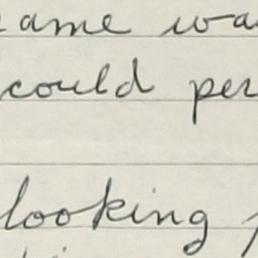 ame wa
could per
looking